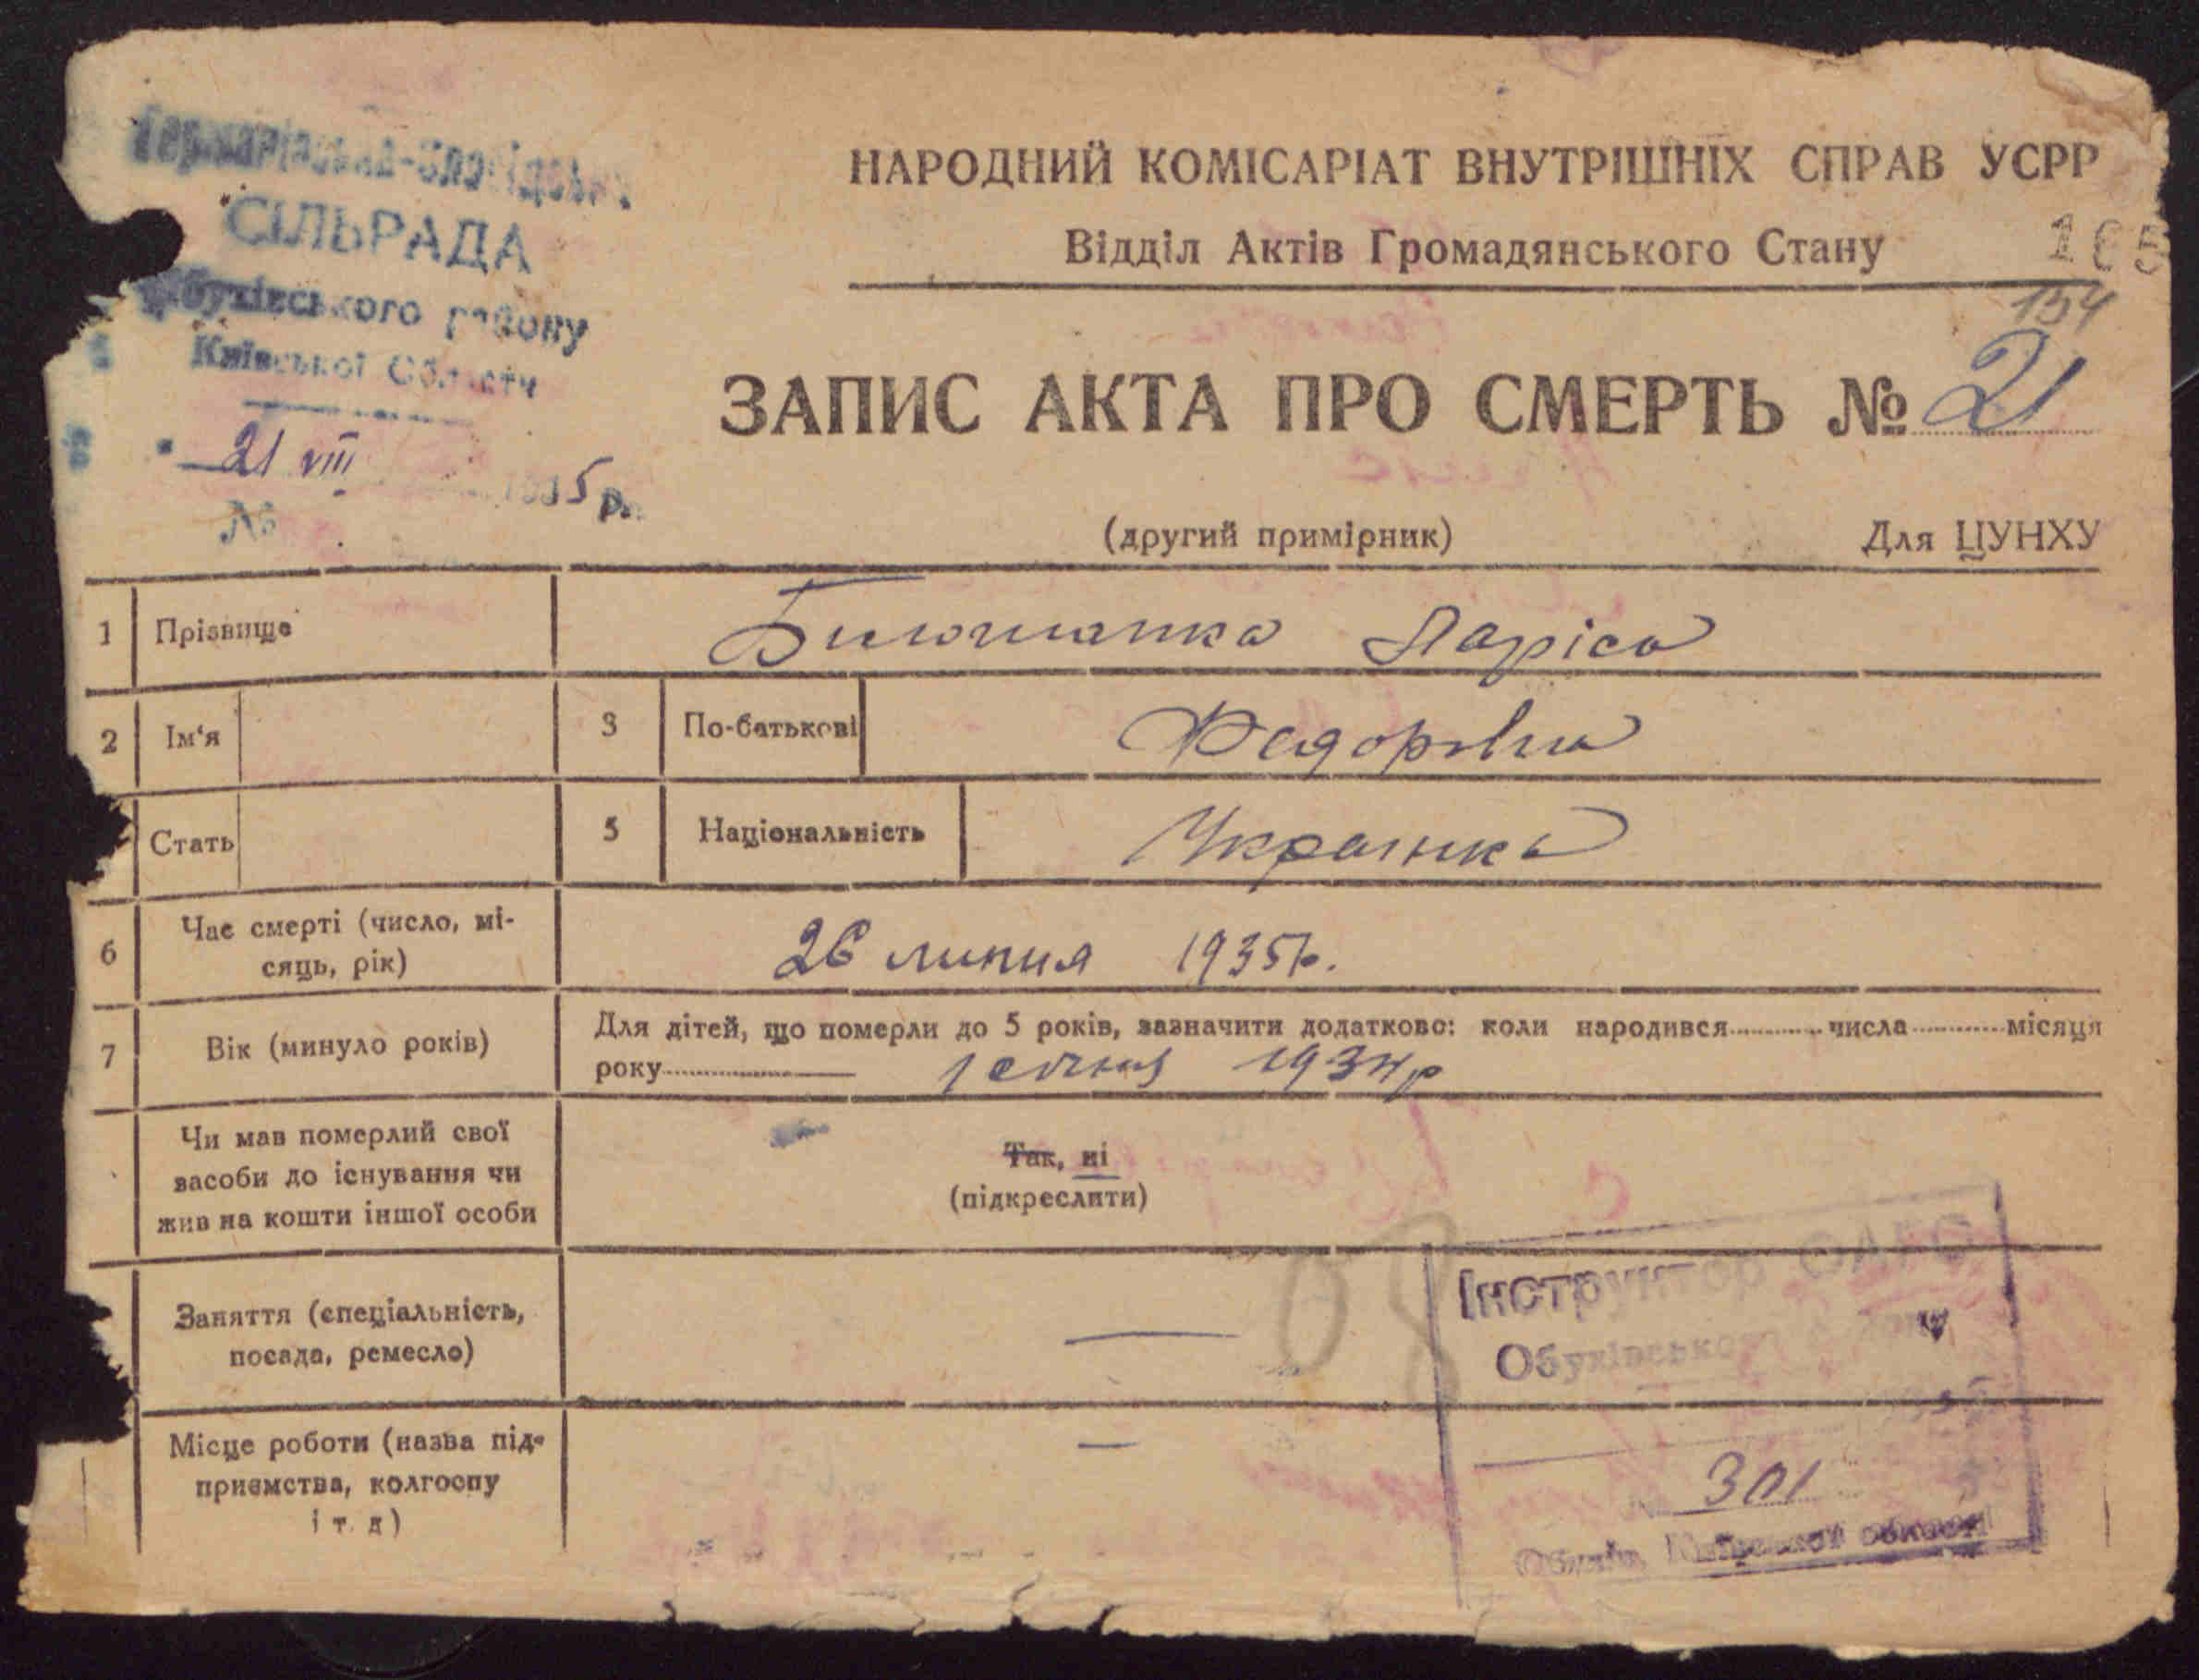 СІЛЬРАДА
Обухівського району
Київської Области
21 VIII 1935 р.
№
НАРОДНИЙ КОМІСАРІАТ ВНУТРІШНІХ СПРАВ УСРР
Відділ Актів Громадянського Стану
165
154
ЗАПИС АКТА ПРО СМЕРТЬ № 21
(другий примірник)
Для ЦУНХУ
1 Прізвище Лариса
2 Ім'я 3 По-батькові Федорівна
Стать 5 Національність Украинка
6 Час смерті (число, мі-
сяць, рік)
26 липня 1935 р.
7 Вік (минуло років)
Для дітей, що померли до 5 років, зазначити додатково: коли народився числа місяця
року 1 січня 1934 р
Чи мав померлий свої
засоби до існування чи
жив на кошти іншої особи
Так, ні
(підкреслити)
Заняття (спеціальність,
посада, ремесло)
—
Місце роботи (назва під-
приємства, колгоспу
і т. д)
—
Інструктор ОАГС
Обухівського
301
Обухів, Київської області